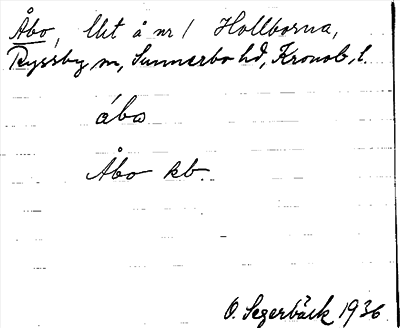 Åbo, lht å nr 1 Hallborna,
Ryssby sn, Sunnerbo hd, Kronob. l.
åbo
Åbo kb.
O. Segerbäck 1936